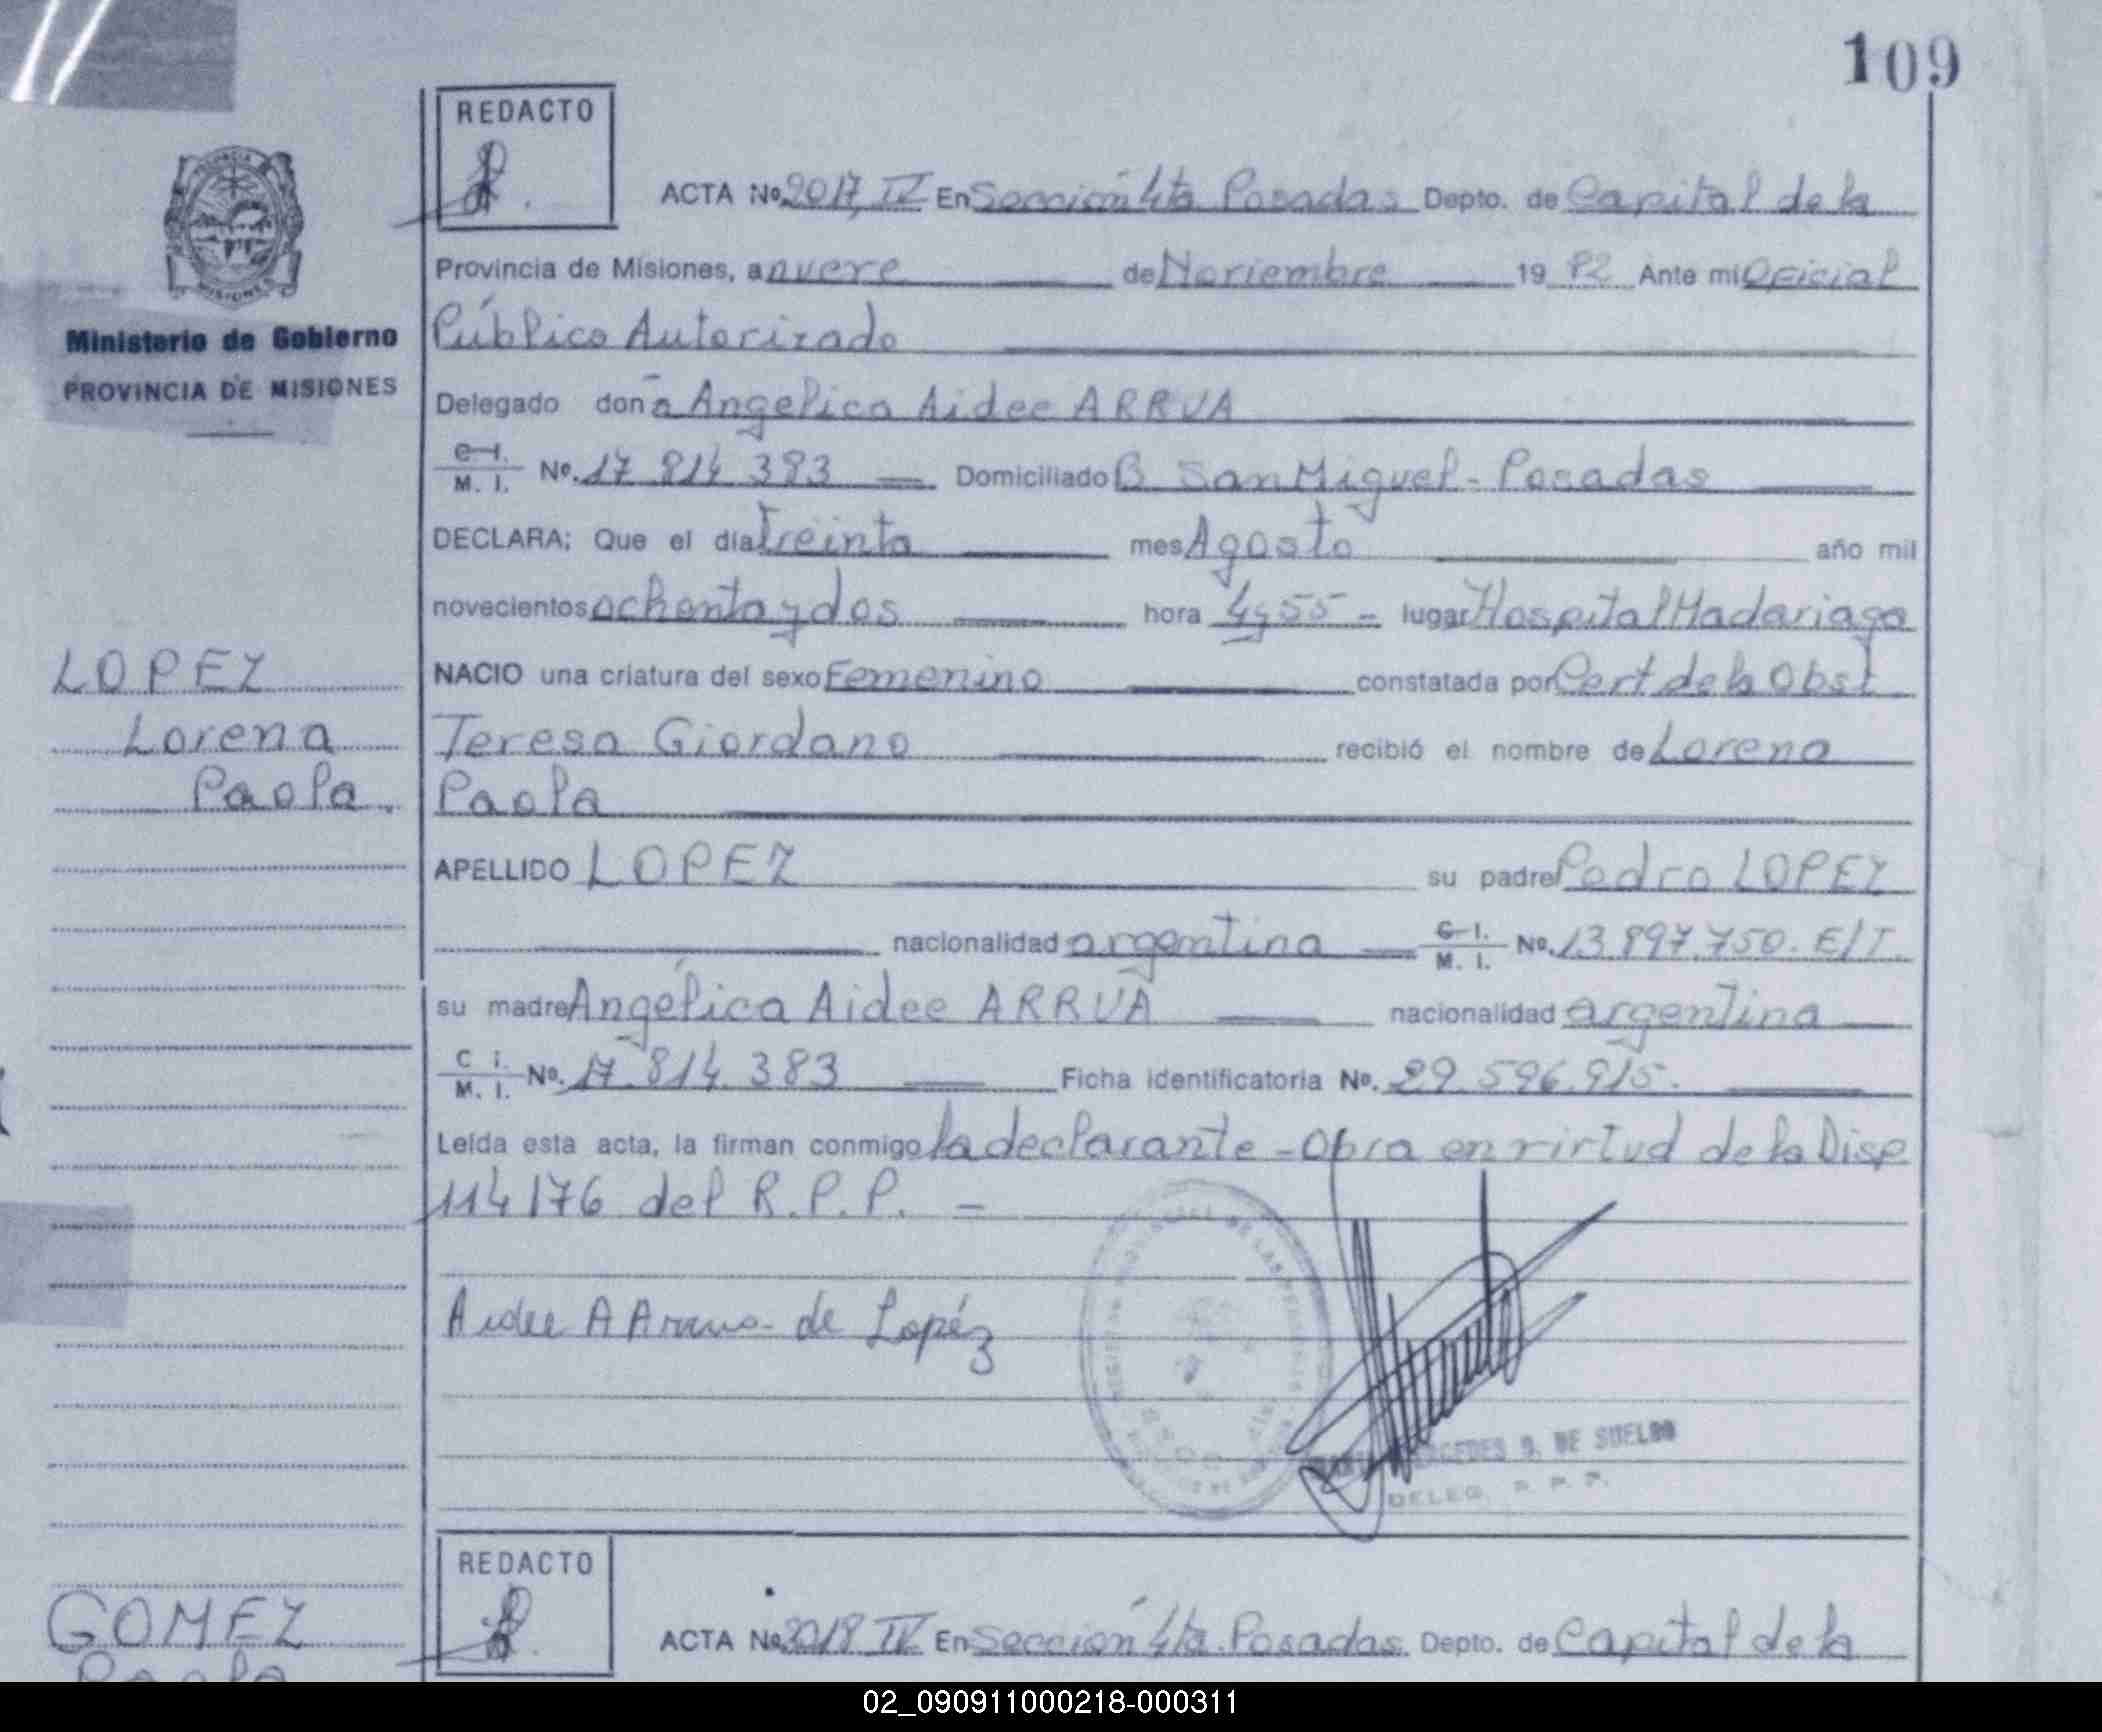 109
REDACTO
ACTA Nº 2017, IV En Sección 4ta Posadas Depto. de Capital de la
Provincia de Misiones, a nueve de Noviembre 19 82 Ante mi Oficial
Ministerio de Gobierno
PROVINCIA DE MISIONES
Público Autorizado
Delegado doña Angelica Aidee ARRUA
C. I. M. I. Nº. 17.814.383 Domiciliado B San Miguel - Posadas
DECLARA: Que el día Treinta mes Agosto año mil
novecientos ochenta y dos hora 4 y 55 - lugar Hospital Madariaga
LOPEZ
Lorena
Paola.
NACIO una criatura del sexo Femenino constatada por Cert de la Obst
Teresa Giordano recibió el nombre de Lorena
Paola
APELLIDO LOPEZ su padre Pedro LOPEZ
nacionalidad argentina C. I. M. I. Nº. 13.897.750. E/T.
su madre Angélica Aidee ARRUA nacionalidad argentina
C. I. M. I. Nº. 17.814.383 Ficha identificatoria Nº. 29.596.915.
Leída esta acta, la firman conmigo la declarante - Obra en virtud de la Disp
114/76 del R.P.P. -
Aidee A Arrua de Lopéz
DE SUELDO
DELEG. R. P. P.
REDACTO
GOMEZ
Paola
ACTA Nº 2018 IV En Sección 4ta. Posadas. Depto. de Capital de la
02_090911000218-000311